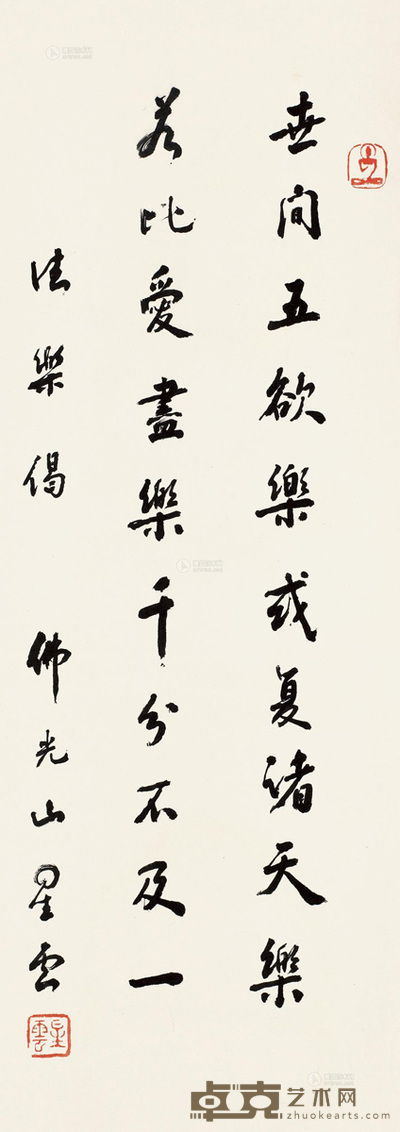 世间五欲樂或复诸天樂
若比愛盡樂千分不及一
法樂偈 佛光山星云
星雲
卓克艺术网
zhuokearts.com